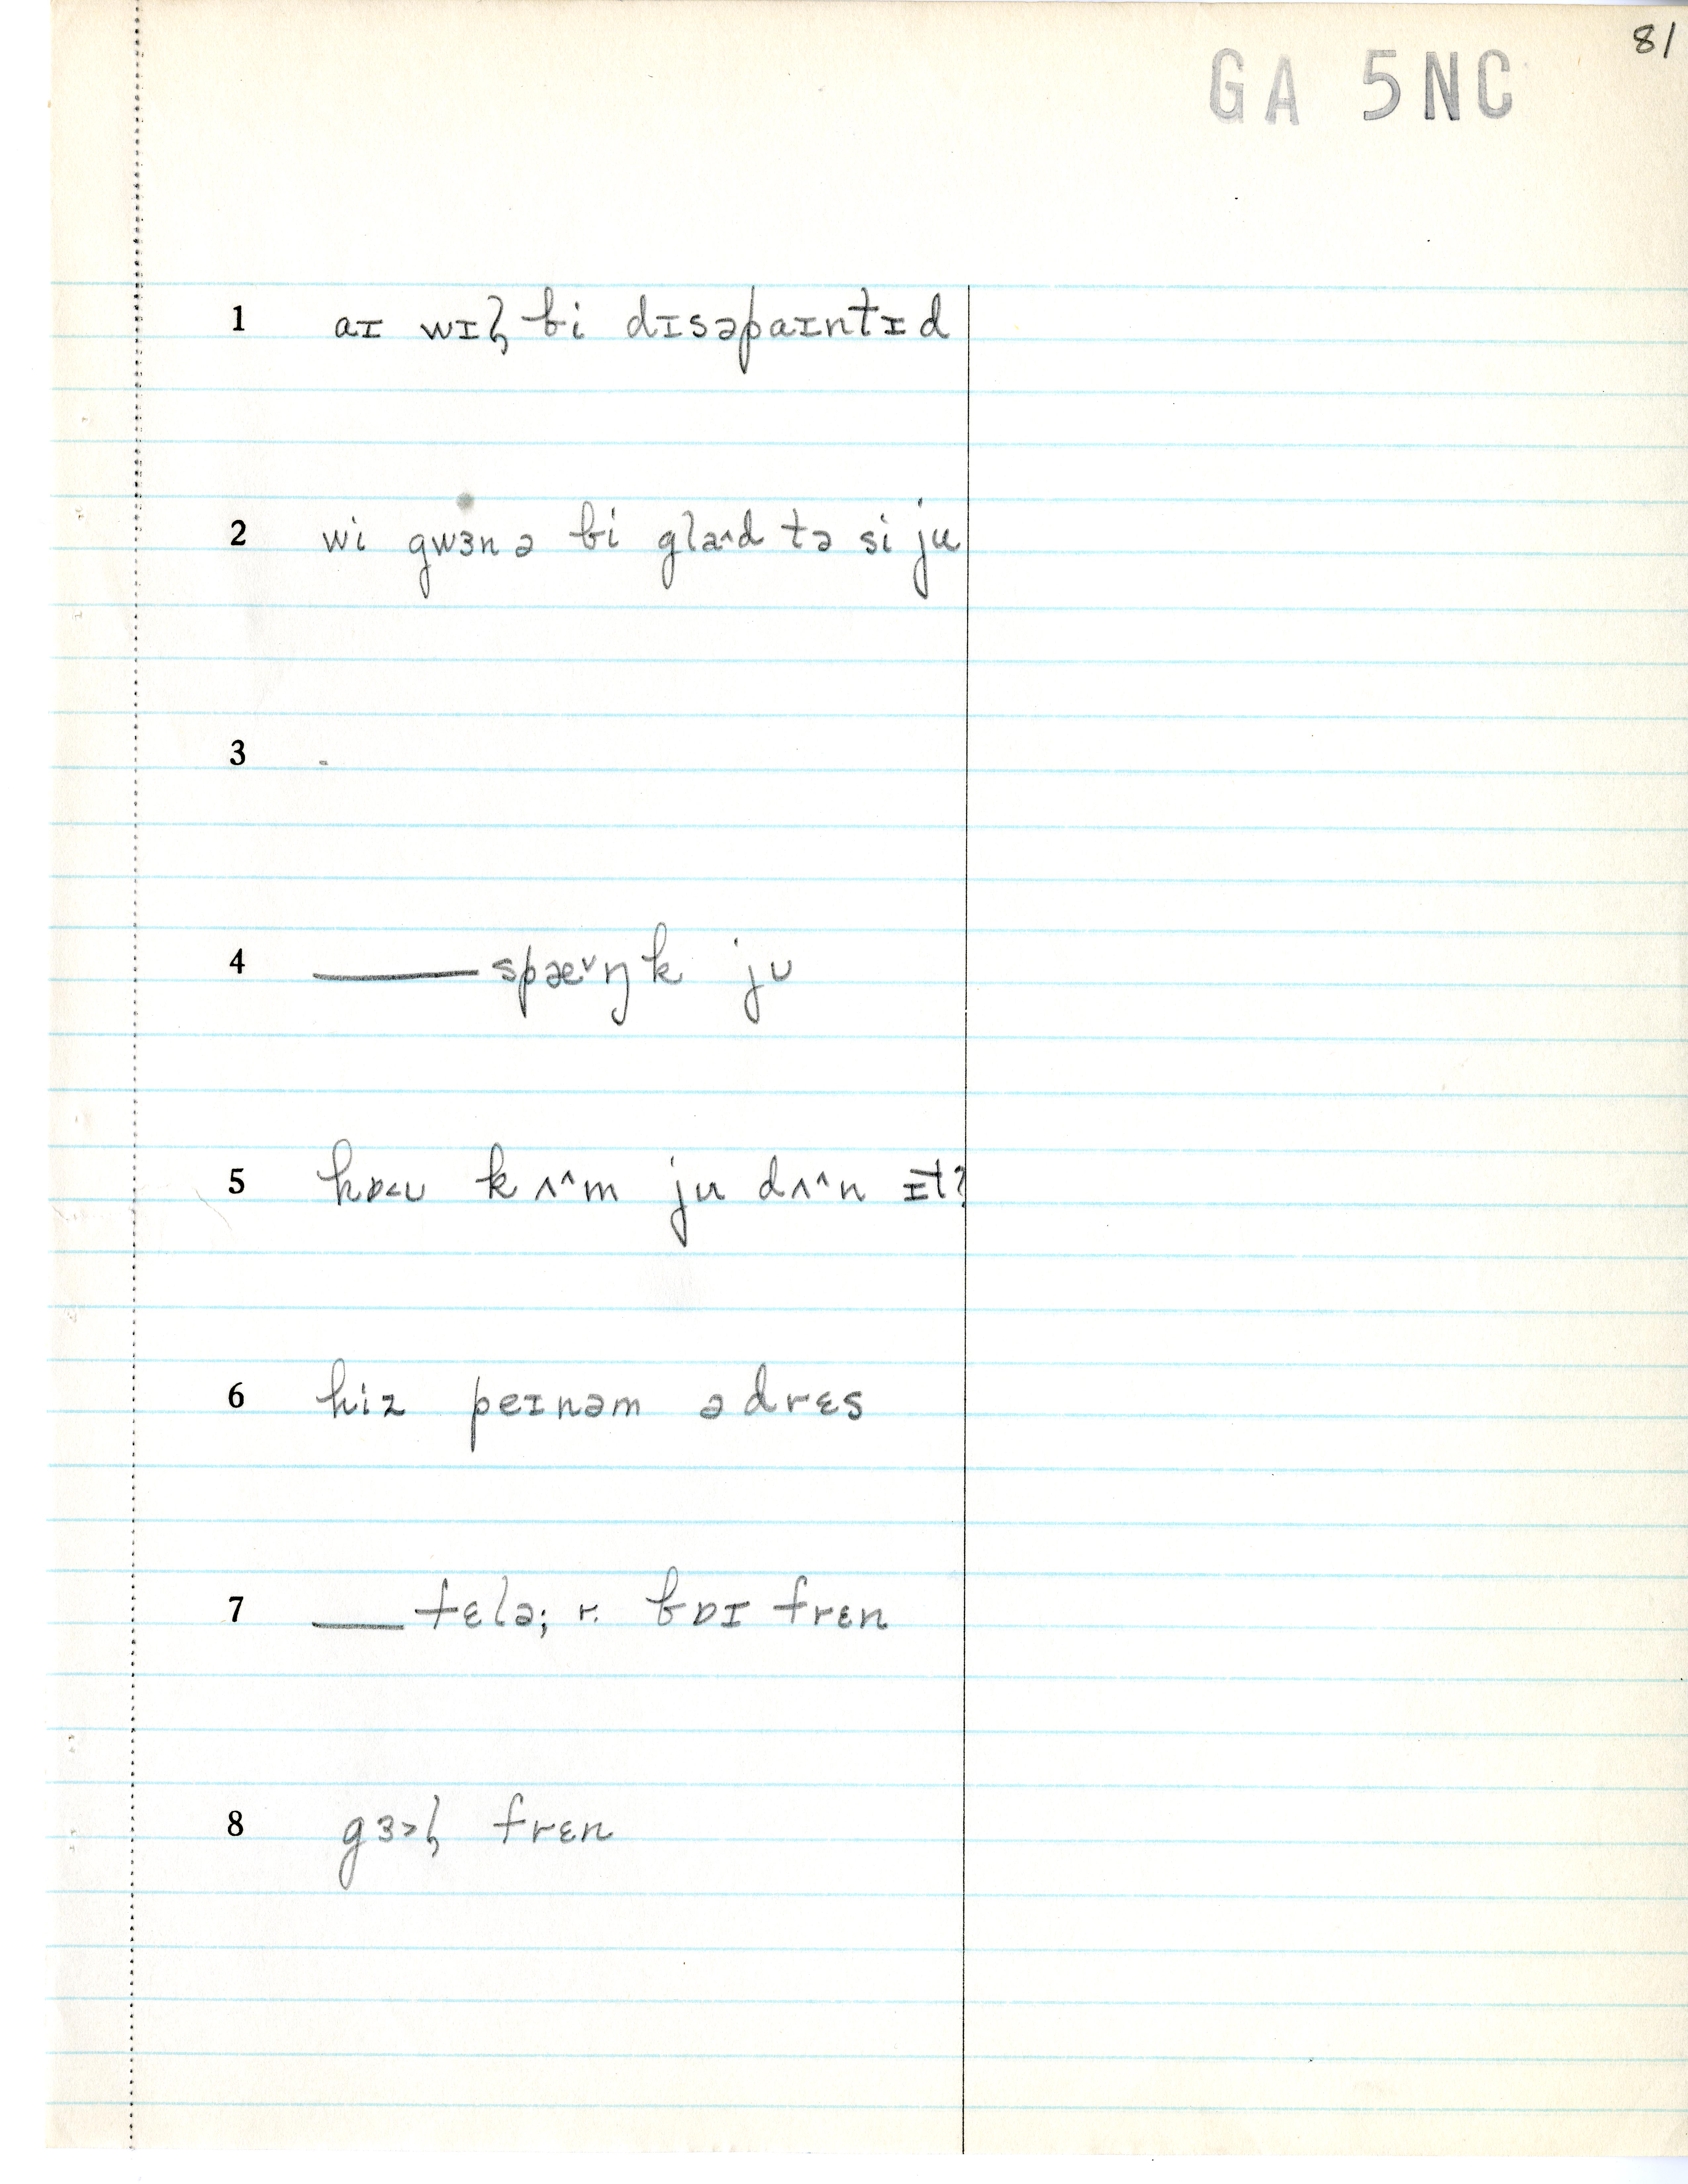 81
GA 5NC
1 aɪ wɪɫ̡ bi dɪsəpaɪntɪd
2 wi gwɜnə bi gla^d tə si ju
3 -
4 ____ spæ˅ŋk ju
5 hɒ<ʊ kʌ^m ju dʌ^n ɪt?
6 hiz peɪnəm ədrɛs
7 ___ fɛlə; r. bɒɪ frɛn
8 gɜ>ɫ̡ frɛn